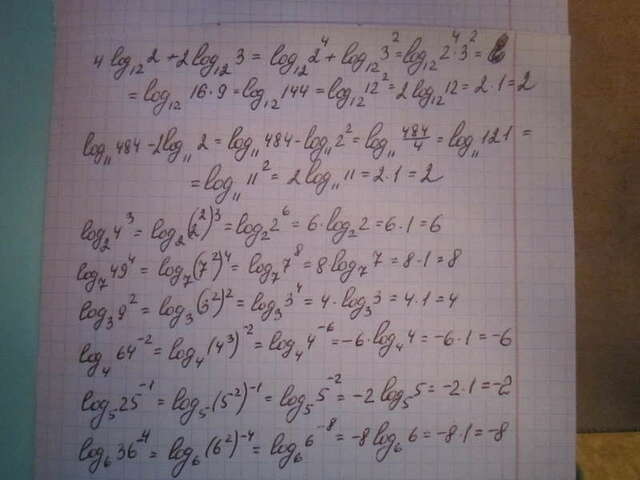 4 log₁₂ 2 + 2 log₁₂ 3 = log₁₂ 2⁴ + log₁₂ 3² = log₁₂ 2⁴·3² =
= log₁₂ 16·9 = log₁₂ 144 = log₁₂ 12² = 2 log₁₂ 12 = 2·1 = 2
log₁₁ 484 - 2log₁₁ 2 = log₁₁ 484 - log₁₁ 2² = log₁₁ 484/4 = log₁₁ 121 =
= log₁₁ 11² = 2 log₁₁ 11 = 2·1 = 2
log₂ 4³ = log₂ (2²)³ = log₂ 2⁶ = 6·log₂ 2 = 6·1 = 6
log₇ 49⁴ = log₇ (7²)⁴ = log₇ 7⁸ = 8·log₇ 7 = 8·1 = 8
log₃ 9² = log₃ (3²)² = log₃ 3⁴ = 4·log₃ 3 = 4·1 = 4
log₄ 64⁻² = log₄ (4³)⁻² = log₄ 4⁻⁶ = -6·log₄ 4 = -6·1 = -6
log₅ 25⁻¹ = log₅ (5²)⁻¹ = log₅ 5⁻² = -2 log₅ 5 = -2·1 = -2
log₆ 36⁻⁴ = log₆ (6²)⁻⁴ = log₆ 6⁻⁸ = -8 log₆ 6 = -8·1 = -8